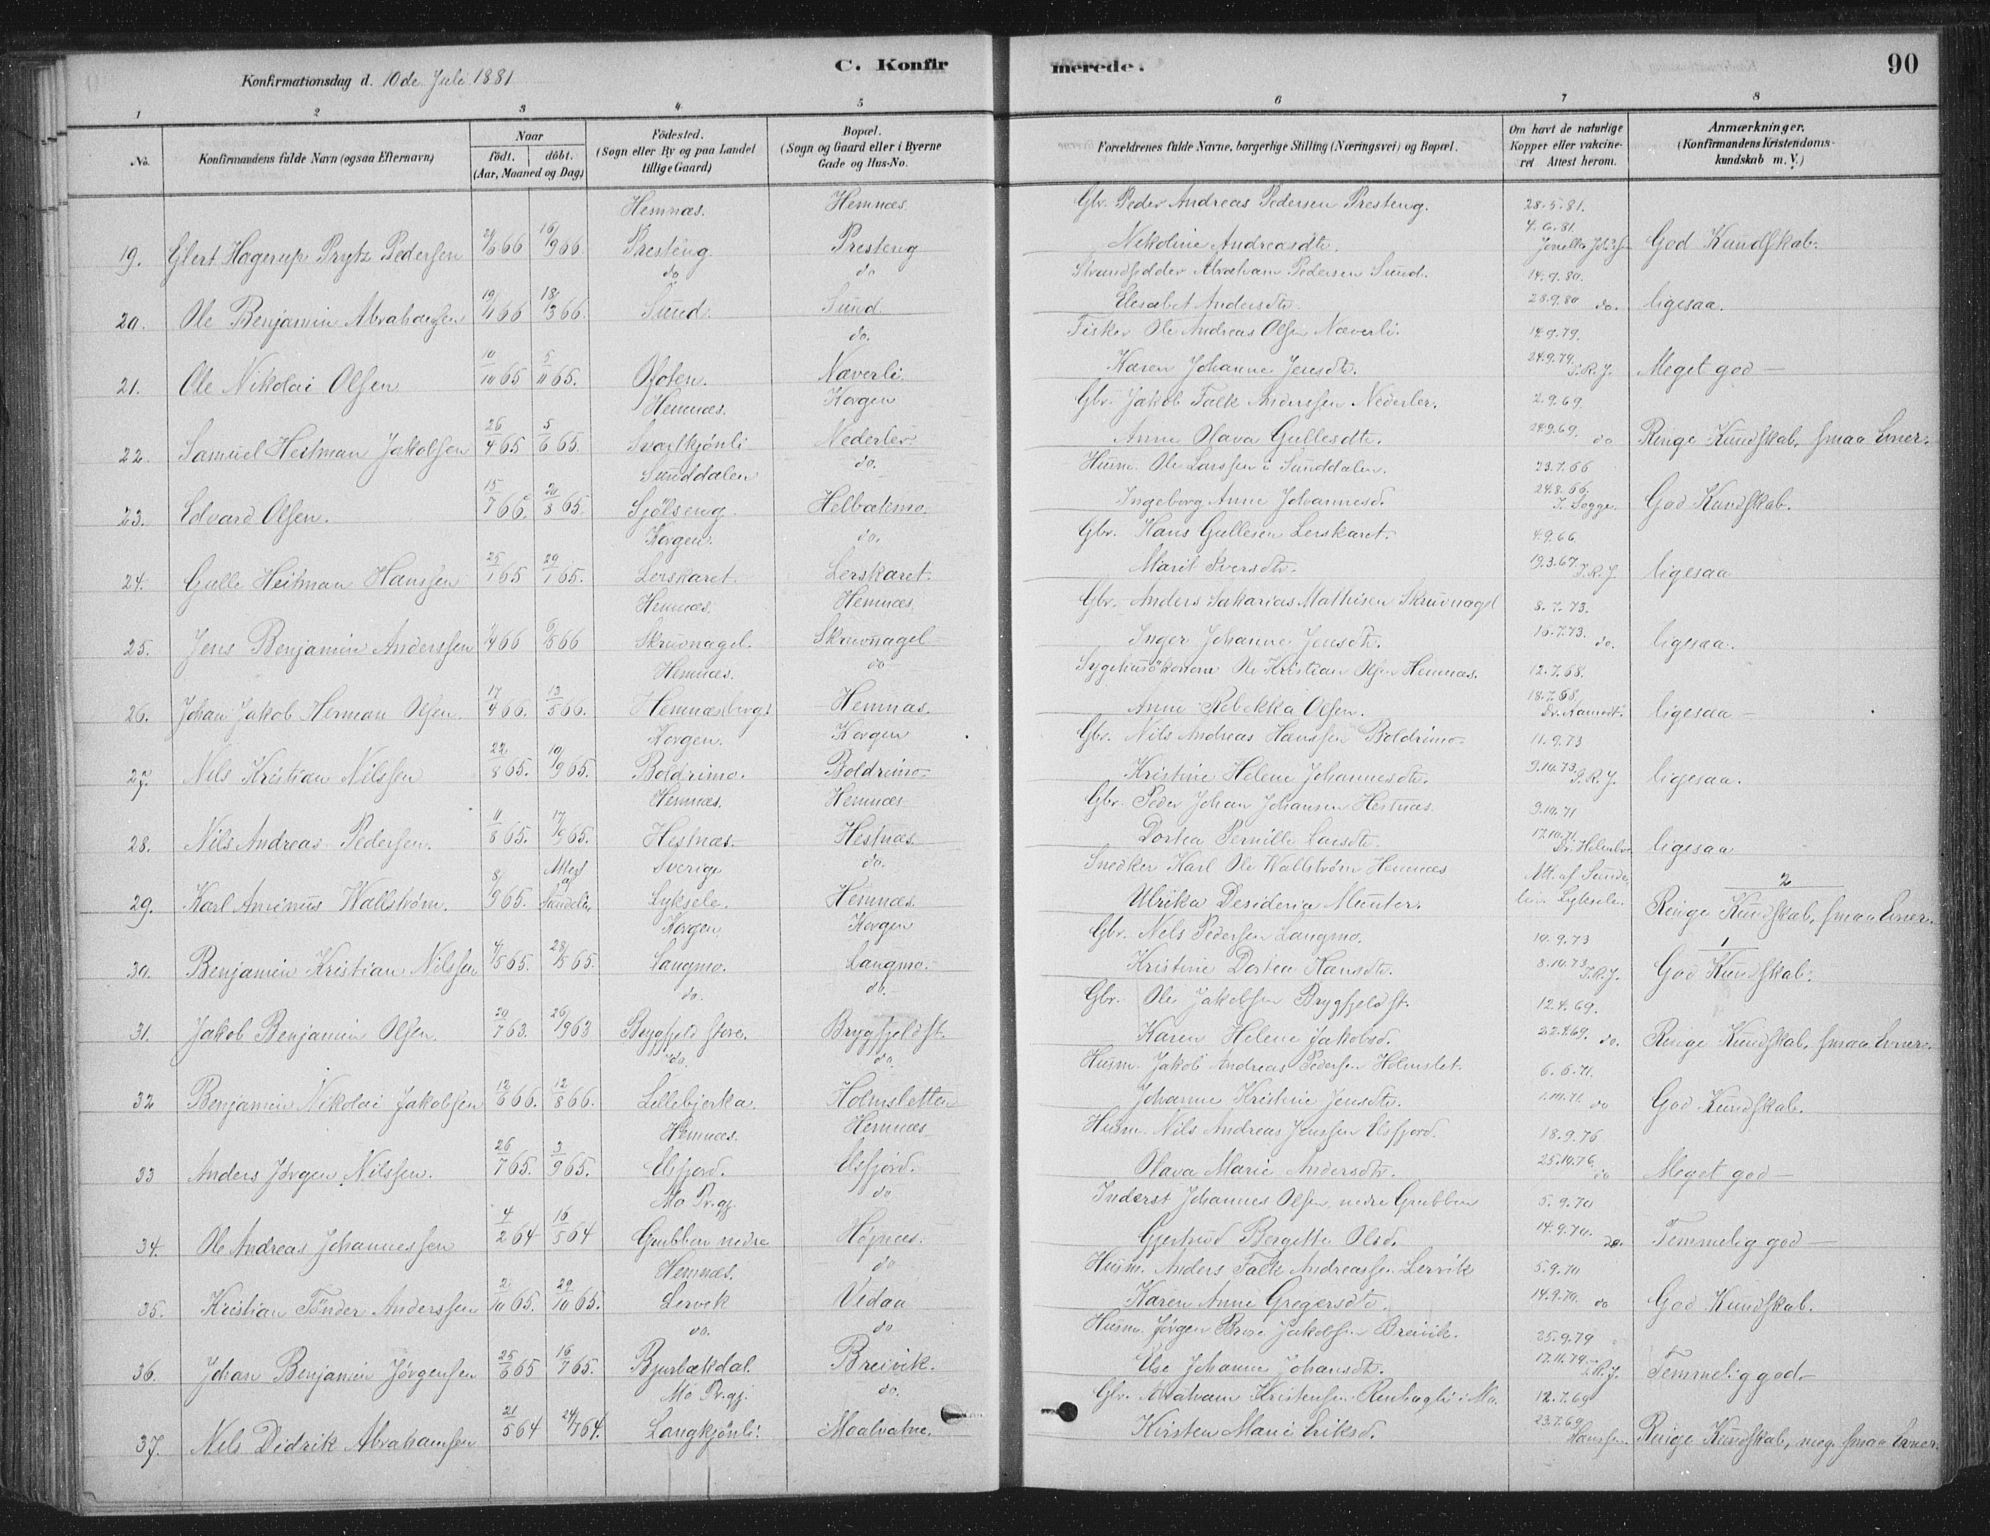 Konfirmationsdag d. 10de Juli 1881
C. Konfirmerede.
90
1 2 3 4 5 6 7 8
No.
Konfirmandens fulde Navn (ogsaa Efternavn)
Naar
født. døbt.
(Aar, Maaned og Dag)
Fødested.
(Sogn eller By og paa Landet
tillige Gaard)
Bopæl.
(Sogn og Gaard eller i Byerne
Gade og Hus-No.
Forældrenes fulde Navne, borgerlige Stilling (Næringsvei) og Bopæl.
Om havt de naturlige
Kopper eller vakcineret
Attest herom.
Anmærkninger.
(Konfirmandens Kristendomskundskab
m. V.)
Hemnæs. Hemnæs. Gbr. Peder Andreas Pedersen Presteng. 28.5.81.
19. Glert Hagerup Prytz Pedersen 66 16/9 66 Presteng Presteng Nikoline Andreasdtr. 4.6.81. God Kundskab.
do do Strandsidder Abraham Pedersen Sund. 14.9.80.
20. Ole Benjamin Abrahamsen 66 18/3 66. Sund. Sund Elesabet Andersdtr. 28.9.80 do. ligesaa.
do. Fisker Ole Andreas Olsen Næverli. 14.9.79.
21. Ole Nikolai Olsen 10/10 65 5/11 65. Ofoten. Næverli Karen Johanne Jensdtr. 24.9.79. J.R.J. Meget god —
Hemnæs. Korgen Gbr. Jakob Falk Andersen Nederler. 2.9.69.
22. Samuel Heitman Jakobsen 26/4 65 5/6 65. Svartkjønli Nederler Anne Olava Gullesdtr. 24.9.69. do Ringe Kundskab, smaa Evner.
Sunddalen do. Husm. Ole Larssen i Sunddalen. 23.7.66
23. Edvard Olsen. 15/7 65. 20/8 65. Sjølseng Helbækmo. Ingeborg Anne Johannesd. 24.8.66 God Kundskab.
Korgen. do. Gbr. Hans Gullesen Lerskaret. 4.9.66
24. Gulle Heitman Hanssen 25/1 65 29/1 65. Lerskaret. Lerskaret. Marit Iversdtr. 19.3.67. J.R.J. ligesaa
Hemnæs. Hemnæs. Gbr. Anders Sakarias Mathisen Skruvnagel 8.7.73.
25. Jens Benjamin Anderssen 66 66 Skruvnagel. Skruvnagel Inger Johanne Jensdtr. 16.7.73. do. ligesaa.
Hemnæs. do Sygehusøkonom Ole Kristian Olsen Hemnæs. 12.7.68.
26. Johan Jakob Herman Olsen. 17/4 66. 13/5 66. Hemnæsberget Hemnæs. Anne Rebekka Olsen. 18.7.68. ligesaa —
Korgen. Korgen Gbr. Nils Andreas Hanssen Boldrimo. 11.9.73
27. Nils Kristian Nilssen 22/8 65. 10/9 65. Boldrimo. Boldrimo. Kristine Helene Johannesdtr. 9.10.73. J.R.J. ligesaa.
Hemnæs. Hemnæs Gbr. Peder Johan Johansen Hestnæs. 9.10.71
28. Nils Andreas Pedersen. 11/8 65. 17/9 65. Hestnæs. Hestnæs. Dortea Pernille Larsdtr. 17.10.71 ligesaa
Sverige do. Snedker Karl Ole Wallstrøm Hemnæs Att. af
29. Karl Aminus Wallstrøm. 8/9 65. Lyksele. Hemnæs. Ulrika Desideria Munter. Lyksele. 2 Ringe Kundskab, smaa Evner.
Korgen Korgen Gbr. Nels Pedersen Langmo. 10.9.73
30. Benjamin Kristian Nilssen 4/5 65. 28/5 65. Langmo. Langmo. Kristine Dortea Hansdtr. 8.10.73. J.R.J. 1 God Kundskab.
do. do. Gbr. Ole Jakobsen Brygfjeld st. 12.4.69.
31. Jakob Benjamin Olsen. 20/7 63. 26/9 63 Brygfjeld store. Brygfjeld st. Karen Helene Jakobsd. 22.4.69. do. Ringe Kundskab, smaa Evner.
do. do. Husm. Jakob Andreas Pedersen Holmslet. 6.6.71.
32 Benjamin Nikolai Jakobsen 12/6 66. 12/8 66. Lillebjerka. Holmsletten Johanne Kristine Jensdtr. 1.10.71. do God Kundskab.
Hemnæs. Hemnæs Husm. Nils Andreas Jenssen Elsfjord. 18.9.76
33 Anders Jørgen Nilssen. 26/7 65. 3/9 65. Elsfjord. Elsfjord. Olava Marie Andersdtr. 25.10.76. do Meget god —
Mo Pr.gj. do Inderst Johannes Olsen, nedre Grubben 5.9.70
34. Ole Andreas Johannessen 4/2 64 16/5 64 Grubben nedre Højnæs. Gjertrud Bergitte Olsd. 14.9.70. do. Temmelig god —
Hemnæs. do Husm. Anders Falk Andreassen Lervik 5.9.70
35. Kristian Tønder Anderssen 2/10 65. 29/10 65. Lervik Vidaa Karen Anne Gregersdtr. 14.9.70. do God Kundskab.
do. do Husm. Jørgen Brose Jakobsen Breivik. 25.9.79
36. Johan Benjamin Jørgensen 25/6 65 16/7 65. Bjurbækdal. Breivik. Else Johanne Johansdtr. 17.11.79. J.R.J. Temmelig god.—
Mo Pr.gj. do. Gbr. Abraham Kristensen i Mo. 12.7.69
37. Nils Didrik Abrahamsen 21/5 64 24/7 64. Langkjønli. Moalvatne. Kirsten Marie Eriksd. 23.7.69 Hanssen. Ringe Kundskab, meg. smaa Evner.